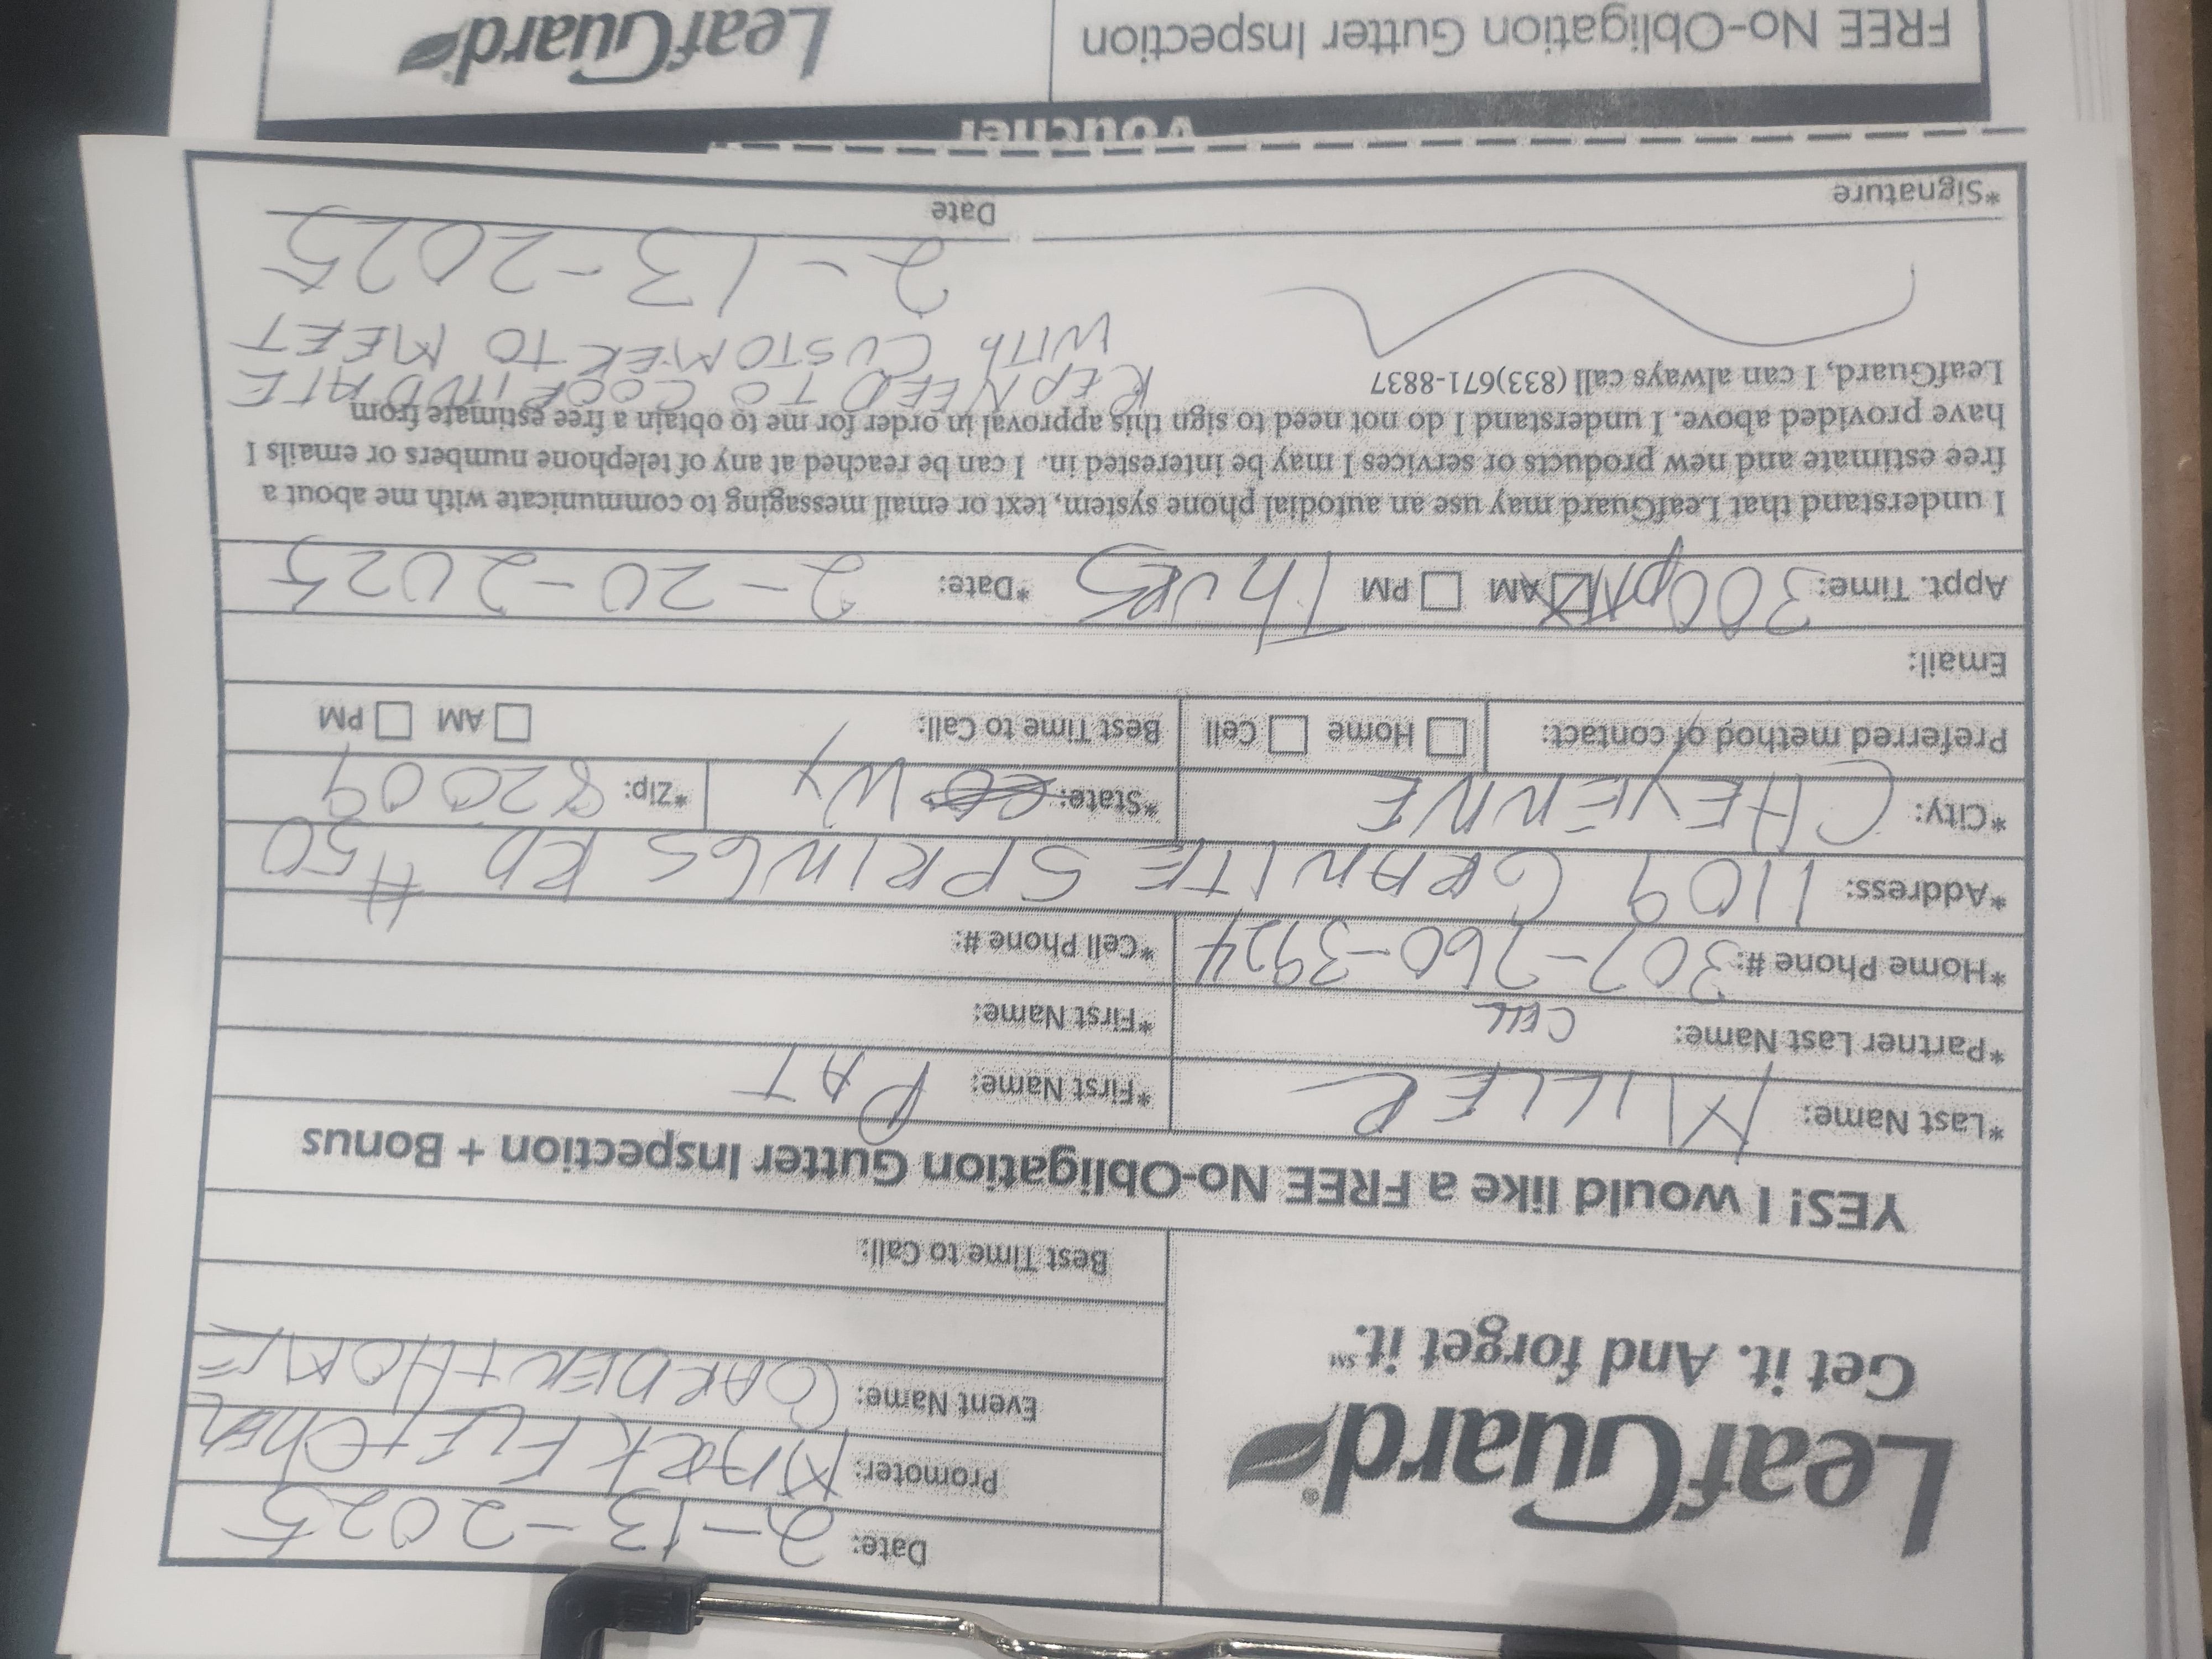 LeafGuard®
Get it. And forget it.℠
Date: 2-13-2025
Promoter: MARK
Event Name: GARDEN + HOME
Best Time to Call:
YES! I would like a FREE No-Obligation Gutter Inspection + Bonus
*Last Name: MILLER *First Name: PAT
*Partner Last Name: *First Name:
CELL
*Home Phone #: 307-760-3924 *Cell Phone #:
*Address: 1109 GRANITE SPRINGS RD #50
*City: CHEYENNE *State: WY *Zip: 82009
Preferred method of contact: Home Cell Best Time to Call: AM PM
Email:
Appt. Time: 300pm AM PM Thurs *Date: 2-20-2025
I understand that LeafGuard may use an autodial phone system, text or email messaging to communicate with me about a
free estimate and new products or services I may be interested in. I can be reached at any of telephone numbers or emails I
have provided above. I understand I do not need to sign this approval in order for me to obtain a free estimate from
LeafGuard, I can always call (833)671-8837
REP NEED TO COORINDATE
WITH CUSTOMER TO MEET
2-13-2025
*Signature Date
Voucher
FREE No-Obligation Gutter Inspection
LeafGuard